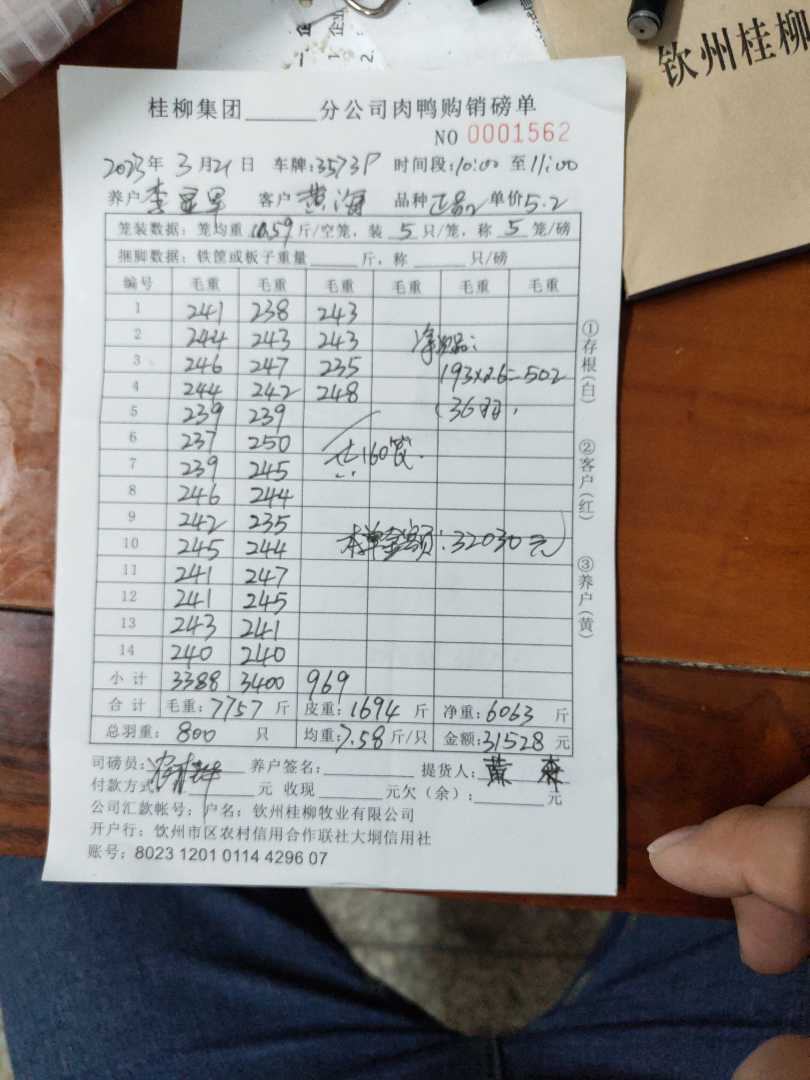 钦州桂柳
桂柳集团______分公司肉鸭购销磅单
NO 0001562
2023年 3月21日 车牌:3573P 时间段:10:00 至11:00
养户 李 客户 黄海 品种 正品 单价5.2
笼装数据：笼均重 10.59 斤/空笼，装 5 只/笼，称 5 笼/磅
捆脚数据：铁筐或板子重量______斤，称______只/磅
编号 毛重 毛重 毛重 毛重 毛重 毛重
1 241 238 243
2 244 243 243
3 246 247 235
4 244 242 248
5 239 239
6 237 250
7 239 245
8 246 244
9 242 235
10 245 244
11 241 247
12 241 245
13 243 241
14 240 240
小计 3388 3400 969
193×2.6=502
(36羽)
共160笼.
本单金额:32030元
合计 毛重:7757斤 皮重:1694斤 净重:6063斤
总羽重: 800 只 均重:7.58斤/只 金额:31528元
司磅员: 养户签名:______ 提货人:黄
付款方式______元 收现______元欠（余）:______元
公司汇款帐号：户名：钦州桂柳牧业有限公司
开户行：钦州市区农村信用合作联社大垌信用社
账号：8023 1201 0114 4296 07
①存根(白)
②客户(红)
③养户(黄)